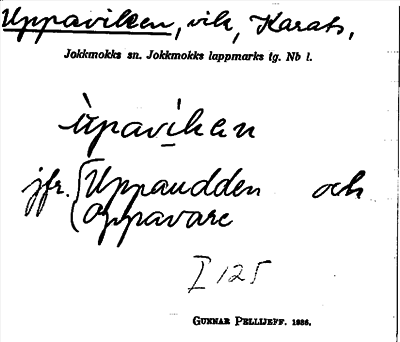 Uppaviken, vik, Karats,
Jokkmokks sn. Jokkmokks lappmarks tg. Nb l.
ùpavi̲ken
jfr. { Uppaudden och
Oppavare
I 125
GUNNAR PELLIJEFF. 1986.